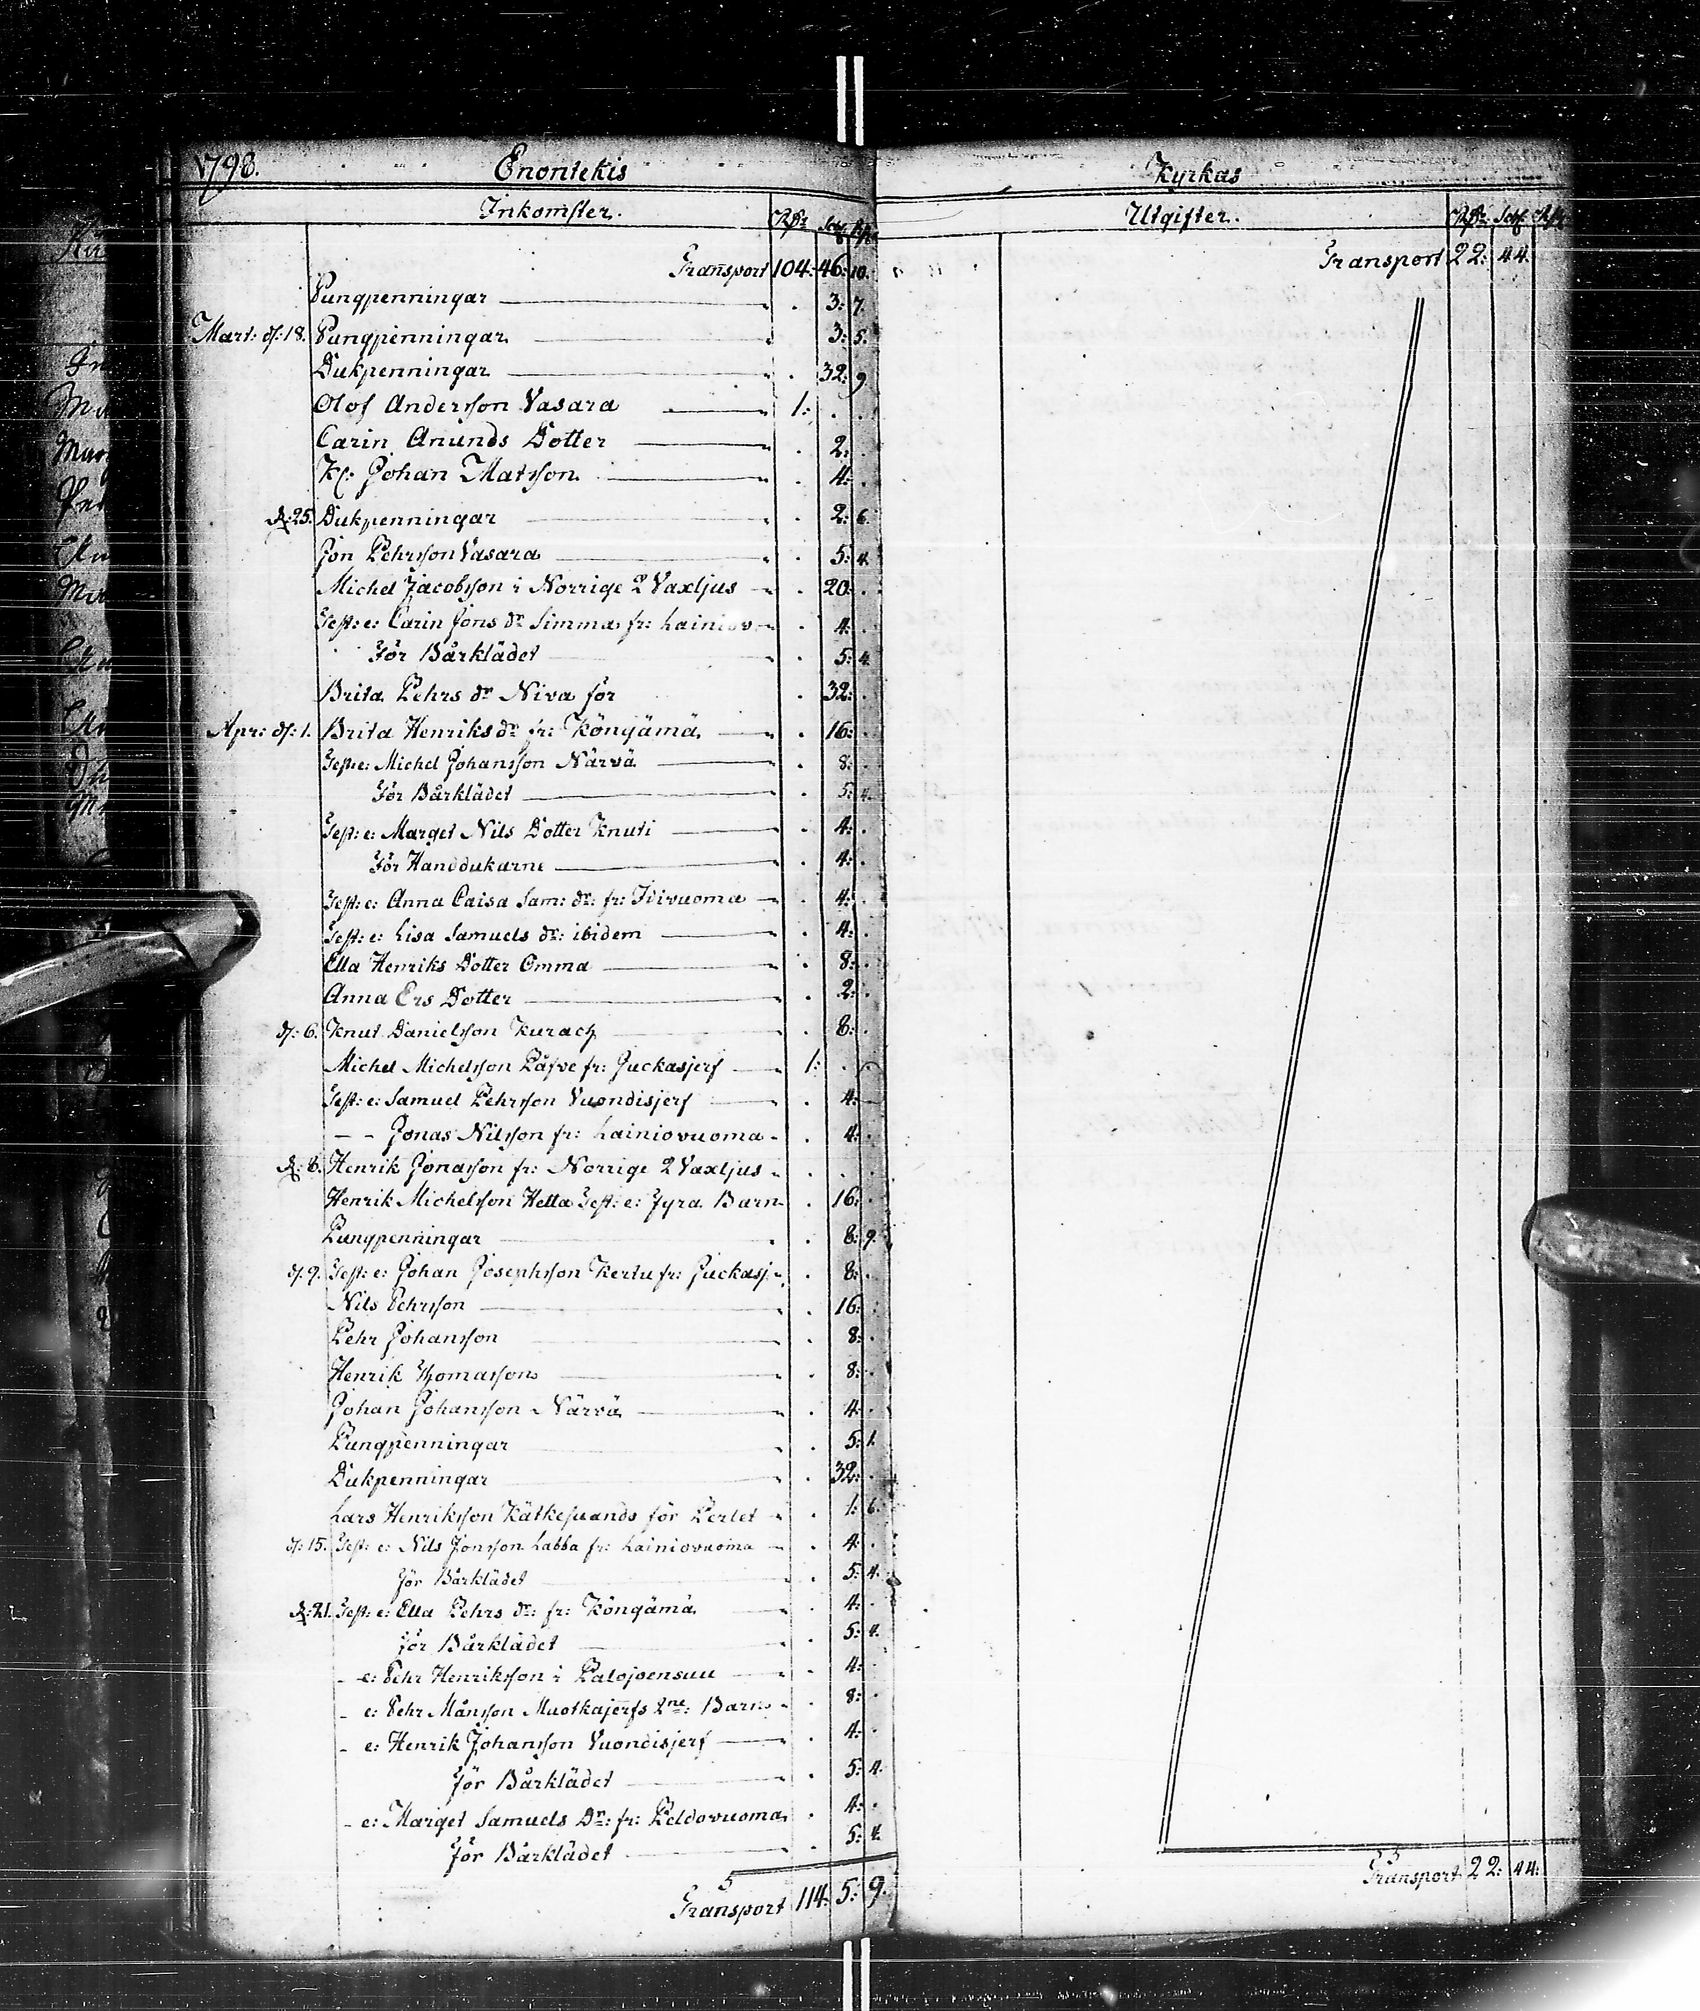 1798. Enontekis
Inkomster. Rdr Sch: Rst:
Transport 104: 46: 10.
Pungpenningar . 3: 7.
Mart: d: 18. Pungpenningar 3: 5.
Dukpenningar . 32: 9
Olof Andersson Vasara 1: . .
Carin Anunds Dotter . 2: .
Kl: Johan Matsson . 4: .
d: 25. Dukpenningar . 2: 6.
Jon Pehrsson Vasara . 5: 4.
Michel Jacobsson i Norrige 2 Vaxljus . 20: .
Test: e: Carin Jons dr Simma fr: Lainiov . 4: .
För Bårklädet . 5: 4.
Brita Pehrs dr Niva för . 32: .
Apr: d: 1. Brita Henriks dr fr: Köngämä . 16: .
Test: e: Michel Johansson Närvä . 8: .
För Bårklädet . 5: 4.
Test: e: Marget Nils Dotter Knuti . 4: .
För Handdukarne . 4: .
Test: e: Anna Caisa Sam: dr: fr: Idivuoma . 4: .
Test: e: Lisa Samuels dr: ibidem . 4: .
Ella Henriks Dotter Omma . 8: .
Anna Ers Dotter . 2: .
d: 6. Knut Danielsson Kurach . 8: .
Michel Michelsson Påfve fr: Juckasjerf 1: .
Test: e: Samuel Pehrsson Vuondisjerf . 4:
- - Jonas Nilsson fr: Lainiovuoma . 4: .
d: 8. Henrik Jonasson fr: Norrige 2 Vaxljus . . .
Henrik Michelsson Hetta Test: e: Fyra Barn . 16: .
Pungpenningar . 8: 9.
d: 9. Test: e: Johan Josephsson Kertu fr: Juckasj: . 8: .
Nils Pehrsson . 16: .
Pehr Johansson . 8: .
Henrik Thomasson . 8: .
Johan Johansson Närvä . 4: .
Pungpenningar . 5: 1.
Dukpenningar . 32: .
Lars Henriksson Kätkesuando för Perlet . 1: 6.
d: 15. Test: e: Nils Jonsson Labba fr: Lainiovuoma . 4: .
för Bårklädet . 5: 4.
d: 21. Test: e: Ella Pehrs dr: fr: Köngämä . 4: .
för Bårklädet . 5: 4.
- e: Pehr Henriksson i Palojoensuu . 4: .
- e: Pehr Månsson Muotkajerfs 2ne: Barn . 8: .
- e: Henrik Johansson Vuondisjerf . 4: .
För Bårklädet . 5: 4.
- e: Marget Samuels Dr: fr: Peldovuoma . 4: .
för Bårklädet . 5: 4.
Transport 114: 5: 9.
Kyrkas
Utgifter. Rdr: Sch: Rst:
Transport 22: 44.
Transport 22: 44: